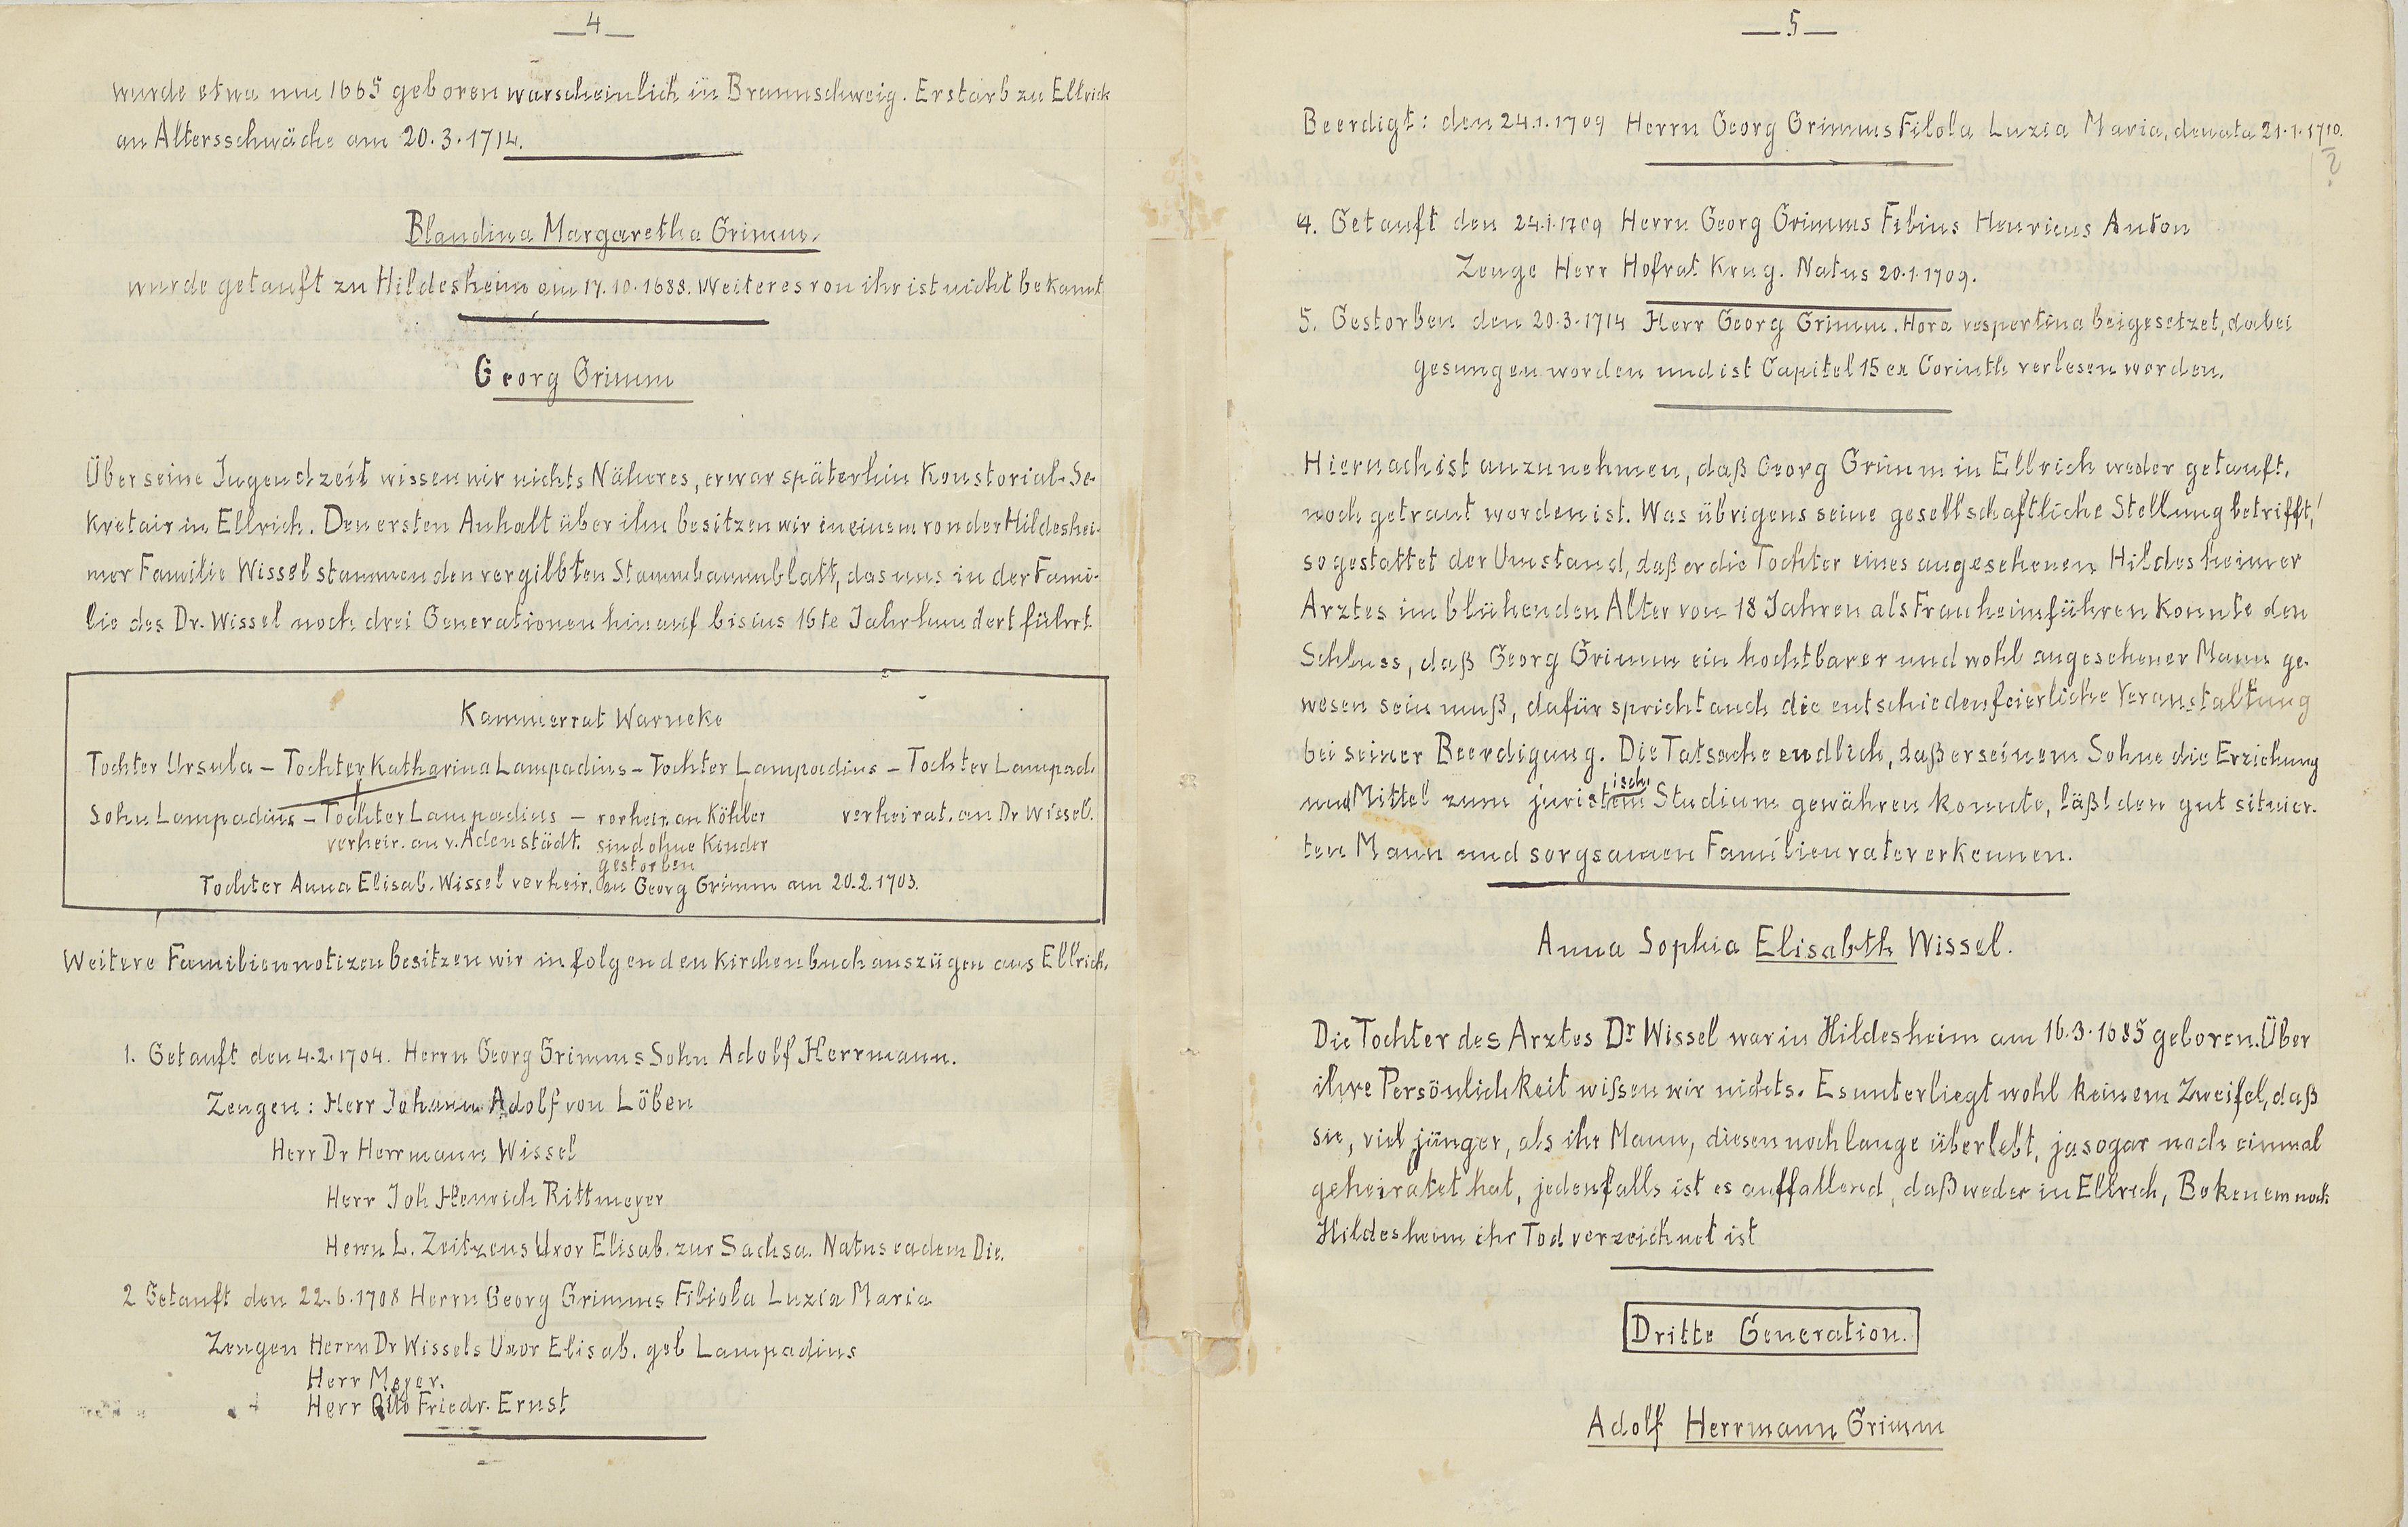 —4—
wurde etwa um 1665 geboren warscheinlich in Braunschweig. Er starb zu Ellrich
an Altersschwäche am 20.3.1714.
Blandina Margaretha Grimm.
wurde getauft zu Hildesheim am 17.10.1688. Weiteres von ihr ist nicht bekannt
Georg Grimm
Über seine Jugendzeit wissen wir nichts Näheres, er war späterhin Konstorial-Se-
kretair in Ellrich. Den ersten Anhalt über ihn besitzen wir in einem von der Hildeshei-
mer Familie Wissel stammenden vergilbten Stammbaumblatt, das uns in der Fami-
lie des Dr. Wissel noch drei Generationen hinauf bis ins 16te Jahrhundert führt
Kammerrat Warneke
Tochter Ursula – Tochter Katharina Lampadius – Tochter Lampadius – Tochter Lampad.
Sohn Lampadius – Tochter Lampadius – verheir. an Köhler verheirat. an Dr Wissel.
verheir. an v. Adenstädt. sind ohne Kinder
gestorben
Tochter Anna Elisab. Wissel verheir. an Georg Grimm am 20.2.1703.
Weitere Familiennotizen besitzen wir in folgenden Kirchenbuchauszügen aus Ellrich.
1. Getauft den 4.2.1704. Herrn Georg Grimms Sohn Adolf Herrmann.
Zeugen: Herr Johann Adolf von Löben
Herr Dr Herrmann Wissel
Herr Joh Henrich Rittmeyer
Herrn L. Zeitzens Uxor Elisab. zur Sachsa. Natus eadem Die.
2 Getauft den 22.6.1708 Herrn Georg Grimms Filiola Luzia Maria
Zeugen Herrn Dr Wissels Uxor Elisab. geb Lampadius
Herr Meyer.
Herr Otto Friedr. Ernst
—5—
Beerdigt: den 24.1.1709 Herrn Georg Grimms Filola Luzia Maria, denata 21.1.1710.
?
4. Getauft den 24.1.1709 Herrn Georg Grimms Filius Henricus Anton
Zeuge Herr Hofrat Krug. Natus 20.1.1709.
5. Gestorben den 20.3.1714 Herr Georg Grimm. Hora vespertina beigesetzet, dabei
gesungen worden und ist Capitel 15 ex Corinth verlesen worden.
Hiernach ist anzunehmen, daß Georg Grimm in Ellrich weder getauft,
noch getraut worden ist. Was übrigens seine gesellschaftliche Stellung betrifft,
so gestattet der Umstand, daß er die Tochter eines angesehenen Hildesheimer
Arztes im blühenden Alter von 18 Jahren als Frau heimführen konnte den
Schluss, daß Georg Grimm ein hochtbarer und wohl angesehener Mann ge-
wesen sein muß, dafür spricht auch die entschieden feierliche Veranstaltung
bei seiner Beerdigung. Die Tatsache endlich, daß er seinem Sohne die Erziehung
isch.
und Mittel zum juristem Studium gewähren konnte, läßt den gut situier-
ten Mann und sorgsamen Familienvater erkennen.
Anna Sophia Elisabth Wissel.
Die Tochter des Arztes Dr Wissel war in Hildesheim am 16.3.1685 geboren. Über
ihre Persönlichkeit wißen wir nichts. Es unterliegt wohl keinem Zweifel, daß
sie, viel jünger, als ihr Mann, diesen noch lange überlebt, ja sogar noch einmal
geheiratet hat, jedenfalls ist es auffallend, daß weder in Ellrich, Bokenem noch
Hildesheim ihr Tod verzeichnet ist
Dritte Generation.
Adolf Herrmann Grimm